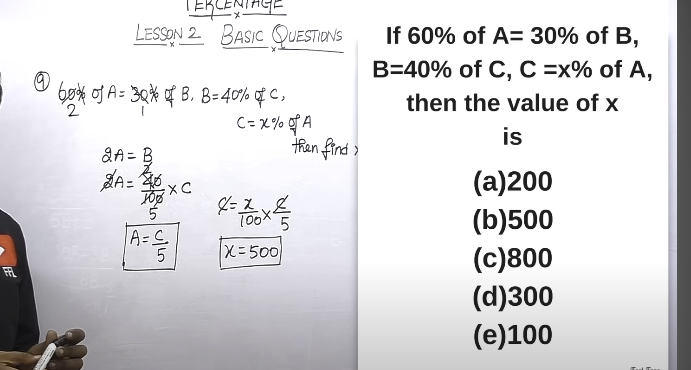 PERCENTAGE
LESSON 2 BASIC QUESTIONS
9 60% of A = 30% of B, B = 40% of C,
2 1
C = x% of A
then find x
2A = B
2
2A = 40/100 × C
5
A = C/5
C = x/100 × C/5
x = 500
If 60% of A= 30% of B,
B=40% of C, C =x% of A,
then the value of x
is
(a)200
(b)500
(c)800
(d)300
(e)100
FFL